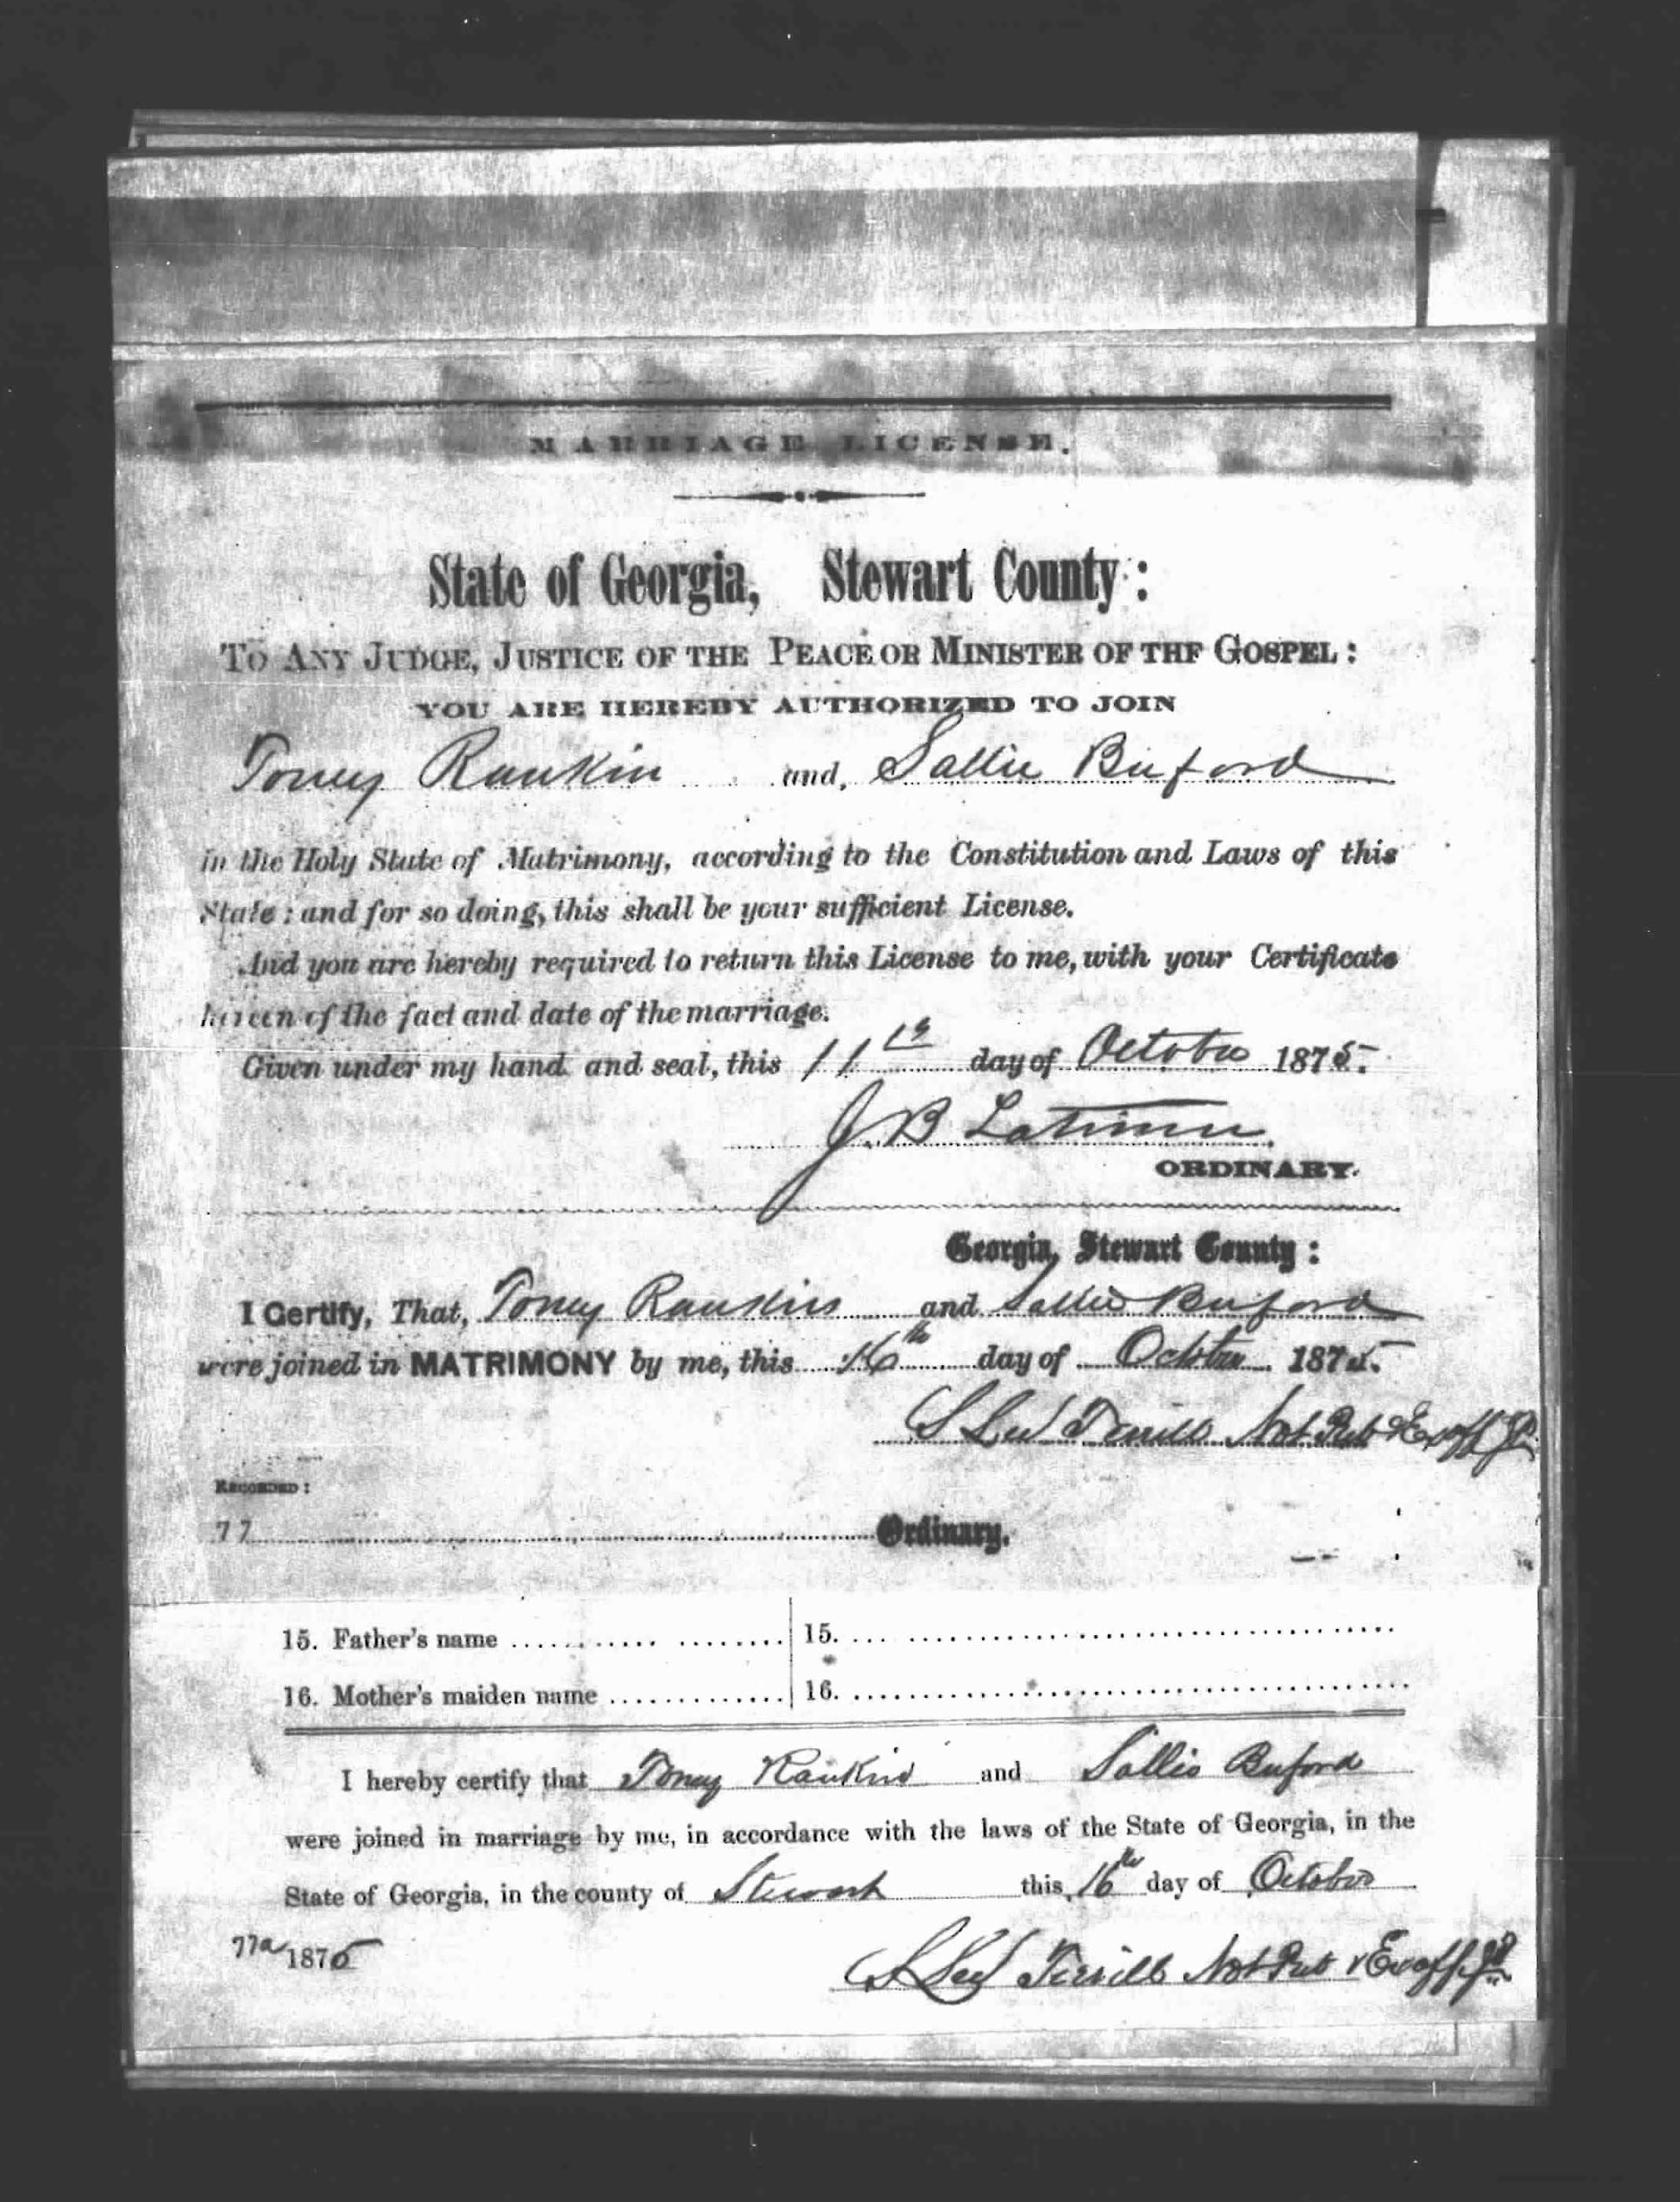 MARRIAGE LICENSE.
State of Georgia, Stewart County:
To Any Judge, Justice of the Peace or Minister of the Gospel:
YOU ARE HEREBY AUTHORIZED TO JOIN
Toney Rankin and, Sallie Buford
in the Holy State of Matrimony, according to the Constitution and Laws of this
State: and for so doing, this shall be your sufficient License.
And you are hereby required to return this License to me, with your Certificate
hereon of the fact and date of the marriage.
Given under my hand and seal, this 11th day of October 1875.
J. B Latimer
ORDINARY.
Georgia, Stewart County:
I Certify, That, Toney Rankins and Sallie Buford
were joined in MATRIMONY by me, this 16th day of October 1875.
S Lee Terrill Not Pub & Ex off JP
Recorded:
77 Ordinary.
15. Father's name 15.
16. Mother's maiden name 16.
I hereby certify that Toney Rankins and Sallie Buford
were joined in marriage by me, in accordance with the laws of the State of Georgia, in the
State of Georgia, in the county of Stewart this 16th day of October
77a 1875
S Lee Terrill Not Pub & Ex off JP